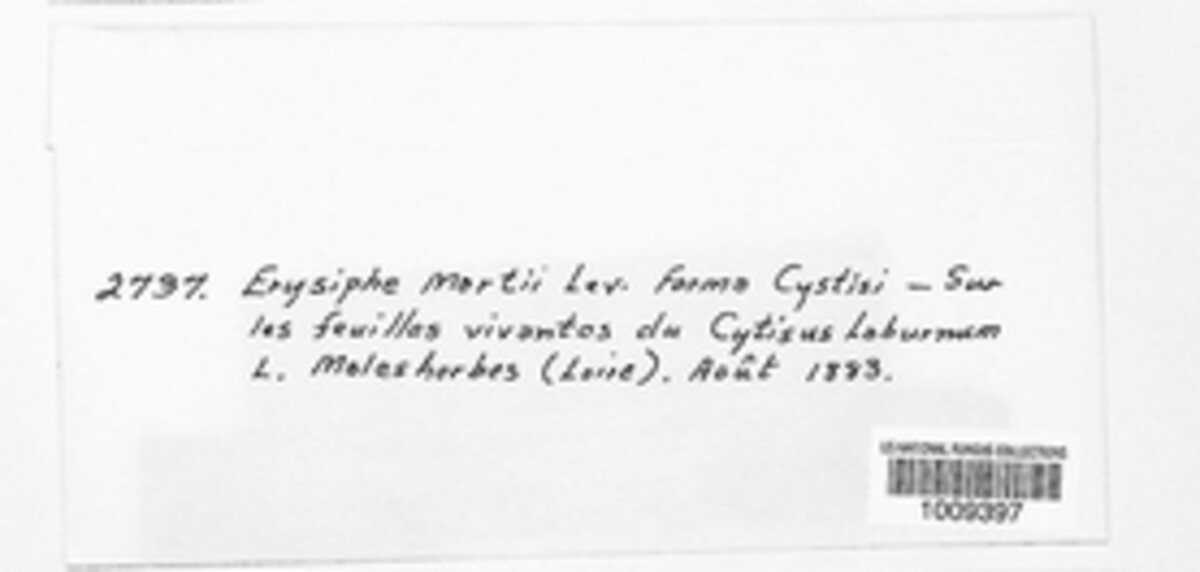 2737. Erysiphe Martii Lev. Forma Cystisi – Sur
les feuilles vivantes du Cytisus Laburnum
L. Malesherbes (Loire). Août 1883.
US NATIONAL FUNGUS COLLECTIONS
1009397